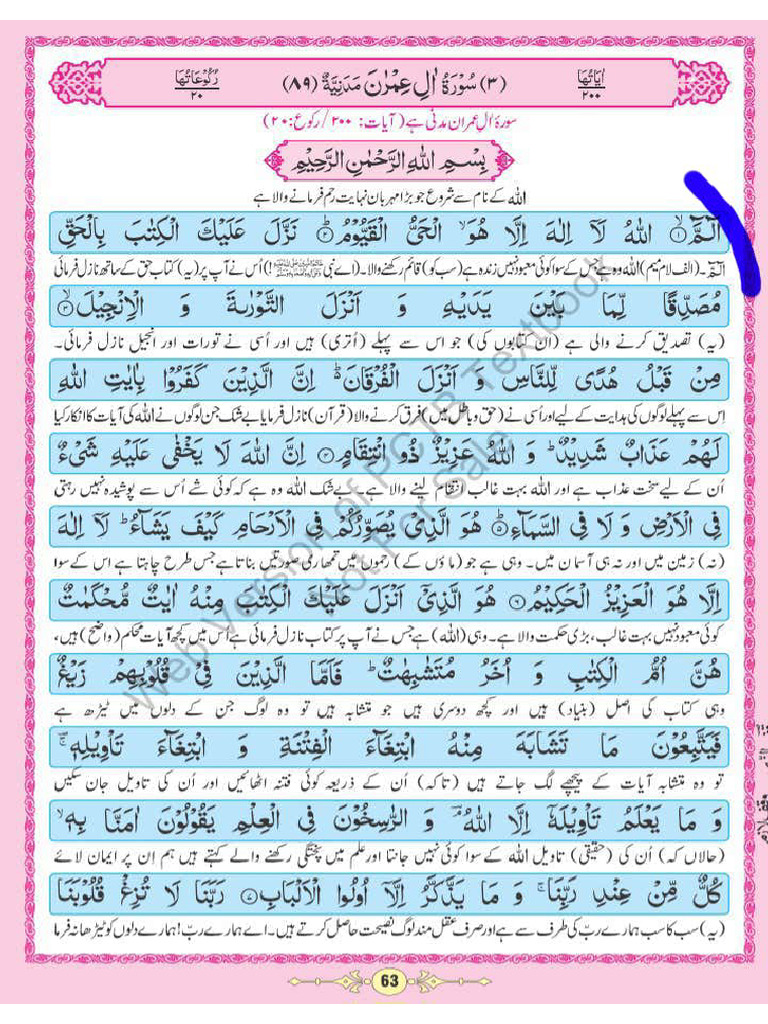 اٰیَاتُهَا ٢٠٠ (٣) سُوْرَةُ اٰلِ عِمْرٰنَ مَدَنِیَّةٌ (٨٩) رُكُوْعَاتُهَا ٢٠
سورۂ اٰلِ عمران مدنی ہے (آیات: ۲۰۰ / رکوع: ۲۰)
بِسْمِ اللّٰهِ الرَّحْمٰنِ الرَّحِیْمِ
اللہ کے نام سے شروع جو بڑا مہربان نہایت رحم فرمانے والا ہے
الٓمَّٓ ۙ﴿۱﴾ اللّٰهُ لَاۤ اِلٰهَ اِلَّا هُوَ ۙ الْحَیُّ الْقَیُّوْمُ ؕ﴿۲﴾ نَزَّلَ عَلَیْكَ الْكِتٰبَ بِالْحَقِّ
الٓمّٓ۔ (الف لام میم) اللہ وہ ہے جس کے سوا کوئی معبود نہیں زندہ ہے (سب کو) قائم رکھنے والا۔ (اے نبی ﷺ!) اُس نے آپ پر (یہ) کتاب حق کے ساتھ نازل فرمائی
مُصَدِّقًا لِّمَا بَیْنَ یَدَیْهِ وَ اَنْزَلَ التَّوْرٰىةَ وَ الْاِنْجِیْلَ ۙ﴿۳﴾
(یہ) تصدیق کرنے والی ہے (ان کتابوں کی) جو اس سے پہلے (اُتری) ہیں اور اُسی نے تورات اور انجیل نازل فرمائی۔
مِنْ قَبْلُ هُدًی لِّلنَّاسِ وَ اَنْزَلَ الْفُرْقَانَ ؕ اِنَّ الَّذِیْنَ كَفَرُوْا بِاٰیٰتِ اللّٰهِ
اِس سے پہلے لوگوں کی ہدایت کے لیے اور اُسی نے (حق و باطل میں) فرق کرنے والا (قرآن) نازل فرمایا بے شک جن لوگوں نے اللہ کی آیات کا انکار کیا
لَهُمْ عَذَابٌ شَدِیْدٌ ؕ وَ اللّٰهُ عَزِیْزٌ ذُو انْتِقَامٍ ﴿۴﴾ اِنَّ اللّٰهَ لَا یَخْفٰی عَلَیْهِ شَیْءٌ
اُن کے لیے سخت عذاب ہے اور اللہ بہت غالب انتقام لینے والا ہے۔ بے شک اللہ وہ ہے کہ کوئی شے اُس سے پوشیدہ نہیں رہتی
فِی الْاَرْضِ وَ لَا فِی السَّمَآءِ ؕ﴿۵﴾ هُوَ الَّذِیْ یُصَوِّرُكُمْ فِی الْاَرْحَامِ كَیْفَ یَشَآءُ ؕ لَاۤ اِلٰهَ
(نہ) زمین میں اور نہ ہی آسمان میں۔ وہی ہے جو (ماؤں کے) رحموں میں تمھاری صورتیں بناتا ہے جس طرح چاہتا ہے اس کے سوا
اِلَّا هُوَ الْعَزِیْزُ الْحَكِیْمُ ﴿۶﴾ هُوَ الَّذِیْۤ اَنْزَلَ عَلَیْكَ الْكِتٰبَ مِنْهُ اٰیٰتٌ مُّحْكَمٰتٌ
کوئی معبود نہیں بہت غالب، بڑی حکمت والا ہے۔ وہی (اللہ) ہے جس نے آپ پر کتاب نازل فرمائی ہے اُس میں کچھ آیات محکم (واضح) ہیں،
هُنَّ اُمُّ الْكِتٰبِ وَ اُخَرُ مُتَشٰبِهٰتٌ ؕ فَاَمَّا الَّذِیْنَ فِیْ قُلُوْبِهِمْ زَیْغٌ
وہی کتاب کی اصل (بنیاد) ہیں اور کچھ دوسری ہیں جو متشابہ ہیں تو وہ لوگ جن کے دلوں میں ٹیڑھ ہے
فَیَتَّبِعُوْنَ مَا تَشَابَهَ مِنْهُ ابْتِغَآءَ الْفِتْنَةِ وَ ابْتِغَآءَ تَاْوِیْلِهٖ ۚ
تو وہ متشابہ آیات کے پیچھے لگ جاتے ہیں (تاکہ) اُن کے ذریعہ کوئی فتنہ اٹھائیں اور اُن کی تاویل جان سکیں
وَ مَا یَعْلَمُ تَاْوِیْلَهٗۤ اِلَّا اللّٰهُ ۘ وَ الرّٰسِخُوْنَ فِی الْعِلْمِ یَقُوْلُوْنَ اٰمَنَّا بِهٖ ۙ
(حالاں کہ) اُن کی (حقیقی) تاویل اللہ کے سوا کوئی نہیں جانتا اور علم میں پختگی رکھنے والے کہتے ہیں ہم اِن پر ایمان لائے
كُلٌّ مِّنْ عِنْدِ رَبِّنَا ۚ وَ مَا یَذَّكَّرُ اِلَّاۤ اُولُوا الْاَلْبَابِ ﴿۷﴾ رَبَّنَا لَا تُزِغْ قُلُوْبَنَا
(یہ) سب کا سب ہمارے ربّ کی طرف سے ہے اور صرف عقل مند لوگ نصیحت حاصل کرتے ہیں۔ اے ہمارے ربّ! ہمارے دلوں کو ٹیڑھا نہ فرما
63
Web Version of PCTB Textbook
Not For Sale